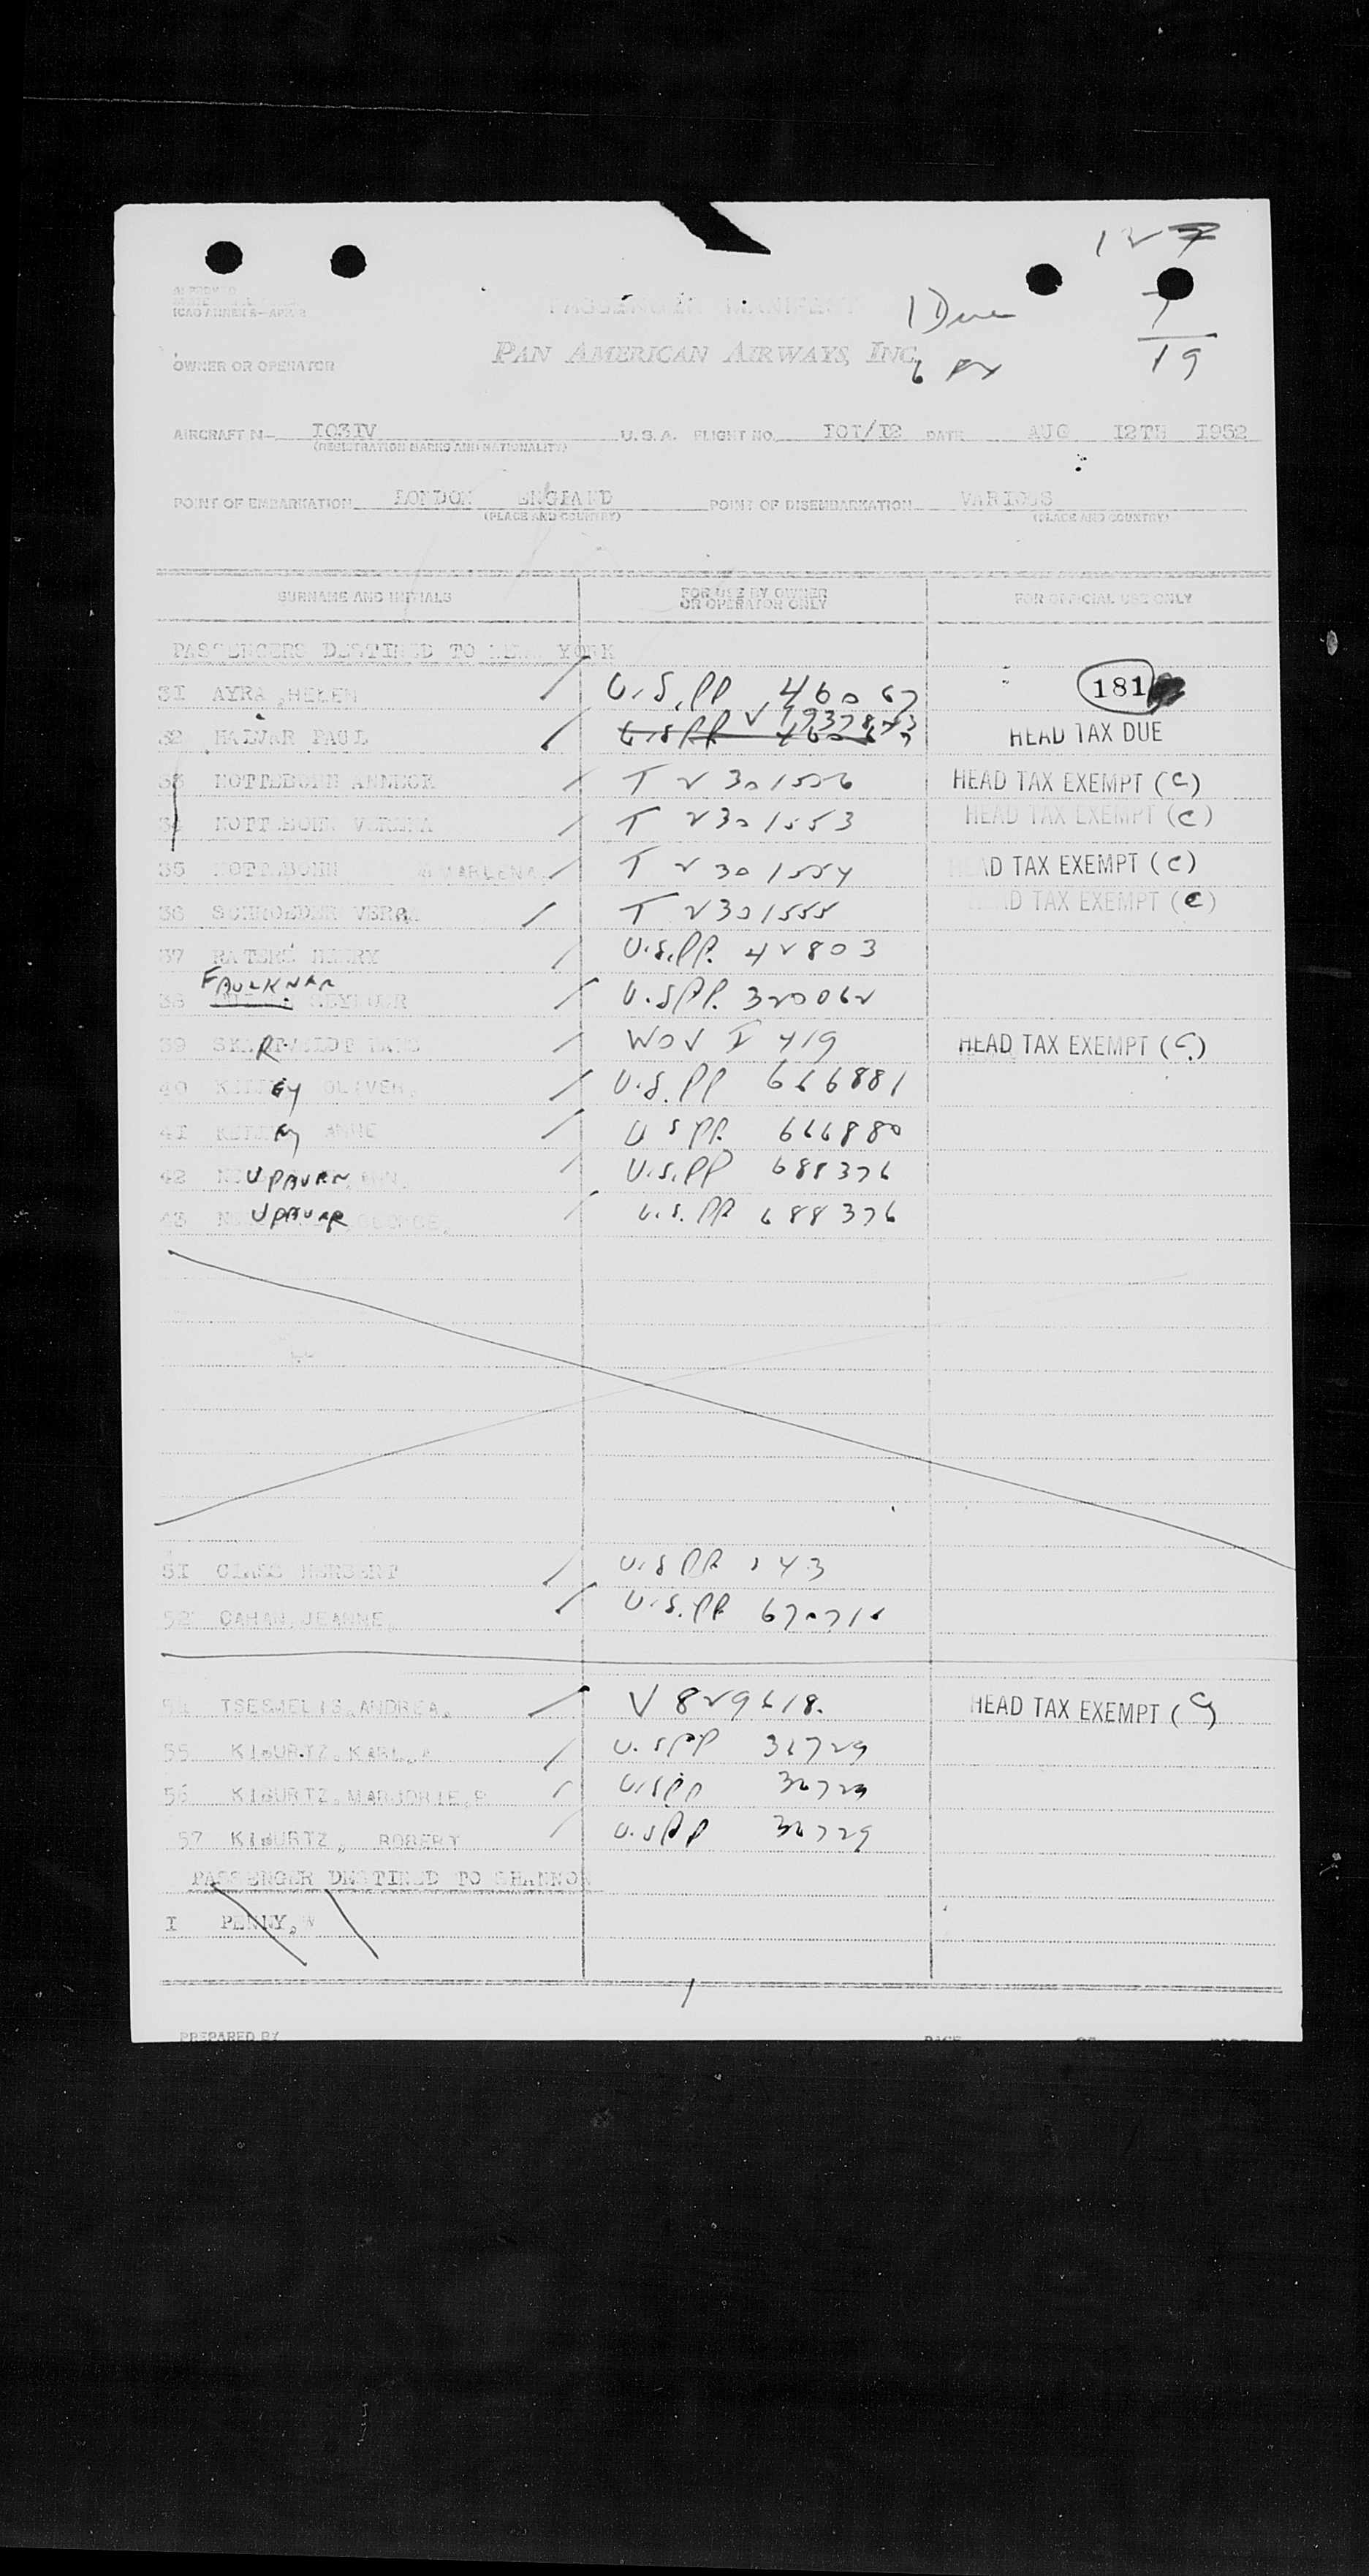 127
APPROVED
ICAO ANNEX 9—APP. 3
PASSENGER MANIFEST
1 Due
7
OWNER OR OPERATOR
PAN AMERICAN AIRWAYS, INC.
6 EX
19
AIRCRAFT N— I03IV U.S.A. FLIGHT NO. I0I/I2 DATE AUG I2TH I952
(REGISTRATION MARKS AND NATIONALITY)
POINT OF EMBARKATION LONDON ENGLAND POINT OF DISEMBARKATION VARIOUS
(PLACE AND COUNTRY) (PLACE AND COUNTRY)
SURNAME AND INITIALS FOR USE BY OWNER OR OPERATOR ONLY FOR OFFICIAL USE ONLY
PASSENGERS DESTINED TO NEW YORK
3I AYRA, HELEN / U.S.PP 46067 181
32 PAUL / HEAD TAX DUE
33 NOTTEBOHM ANNEGR / T V 301556 HEAD TAX EXEMPT (C)
34 NOTTEBOHM VERENA / T V301553 HEAD TAX EXEMPT (C)
35 NOTTEBOHM MARLENA / T V 301554 HEAD TAX EXEMPT (C)
36 SCHROEDER VERA / T V301555 HEAD TAX EXEMPT (C)
37 HENRY / U.S.PP. 42803
FAULKNER
38 SEYMOUR / U.S.PP. 320062
39 / I 419 HEAD TAX EXEMPT (C)
40 EY OLIVER, / U.S.PP 666881
4I EY ANNE / U S PP. 666880
42 / U.S.PP 688376
43 GEORGE, / U.S.PP 688376
5I GLASS HERBERT / U.S PP 143
52 CAHAN, JEANNE, / U.S.PP 670716
54 TSESMELIS, ANDREA, / V 829618. HEAD TAX EXEMPT (C)
55 KIBURTZ, KARL, / U.S PP 36729
56 KIBURTZ, MARJORIE, P / U.S PP 36729
57 KIBURTZ, ROBERT / U.S PP 36729
PASSENGER DESTINED TO SHANNON
I PENNY, W
PREPARED BY PAGE OF PAGES